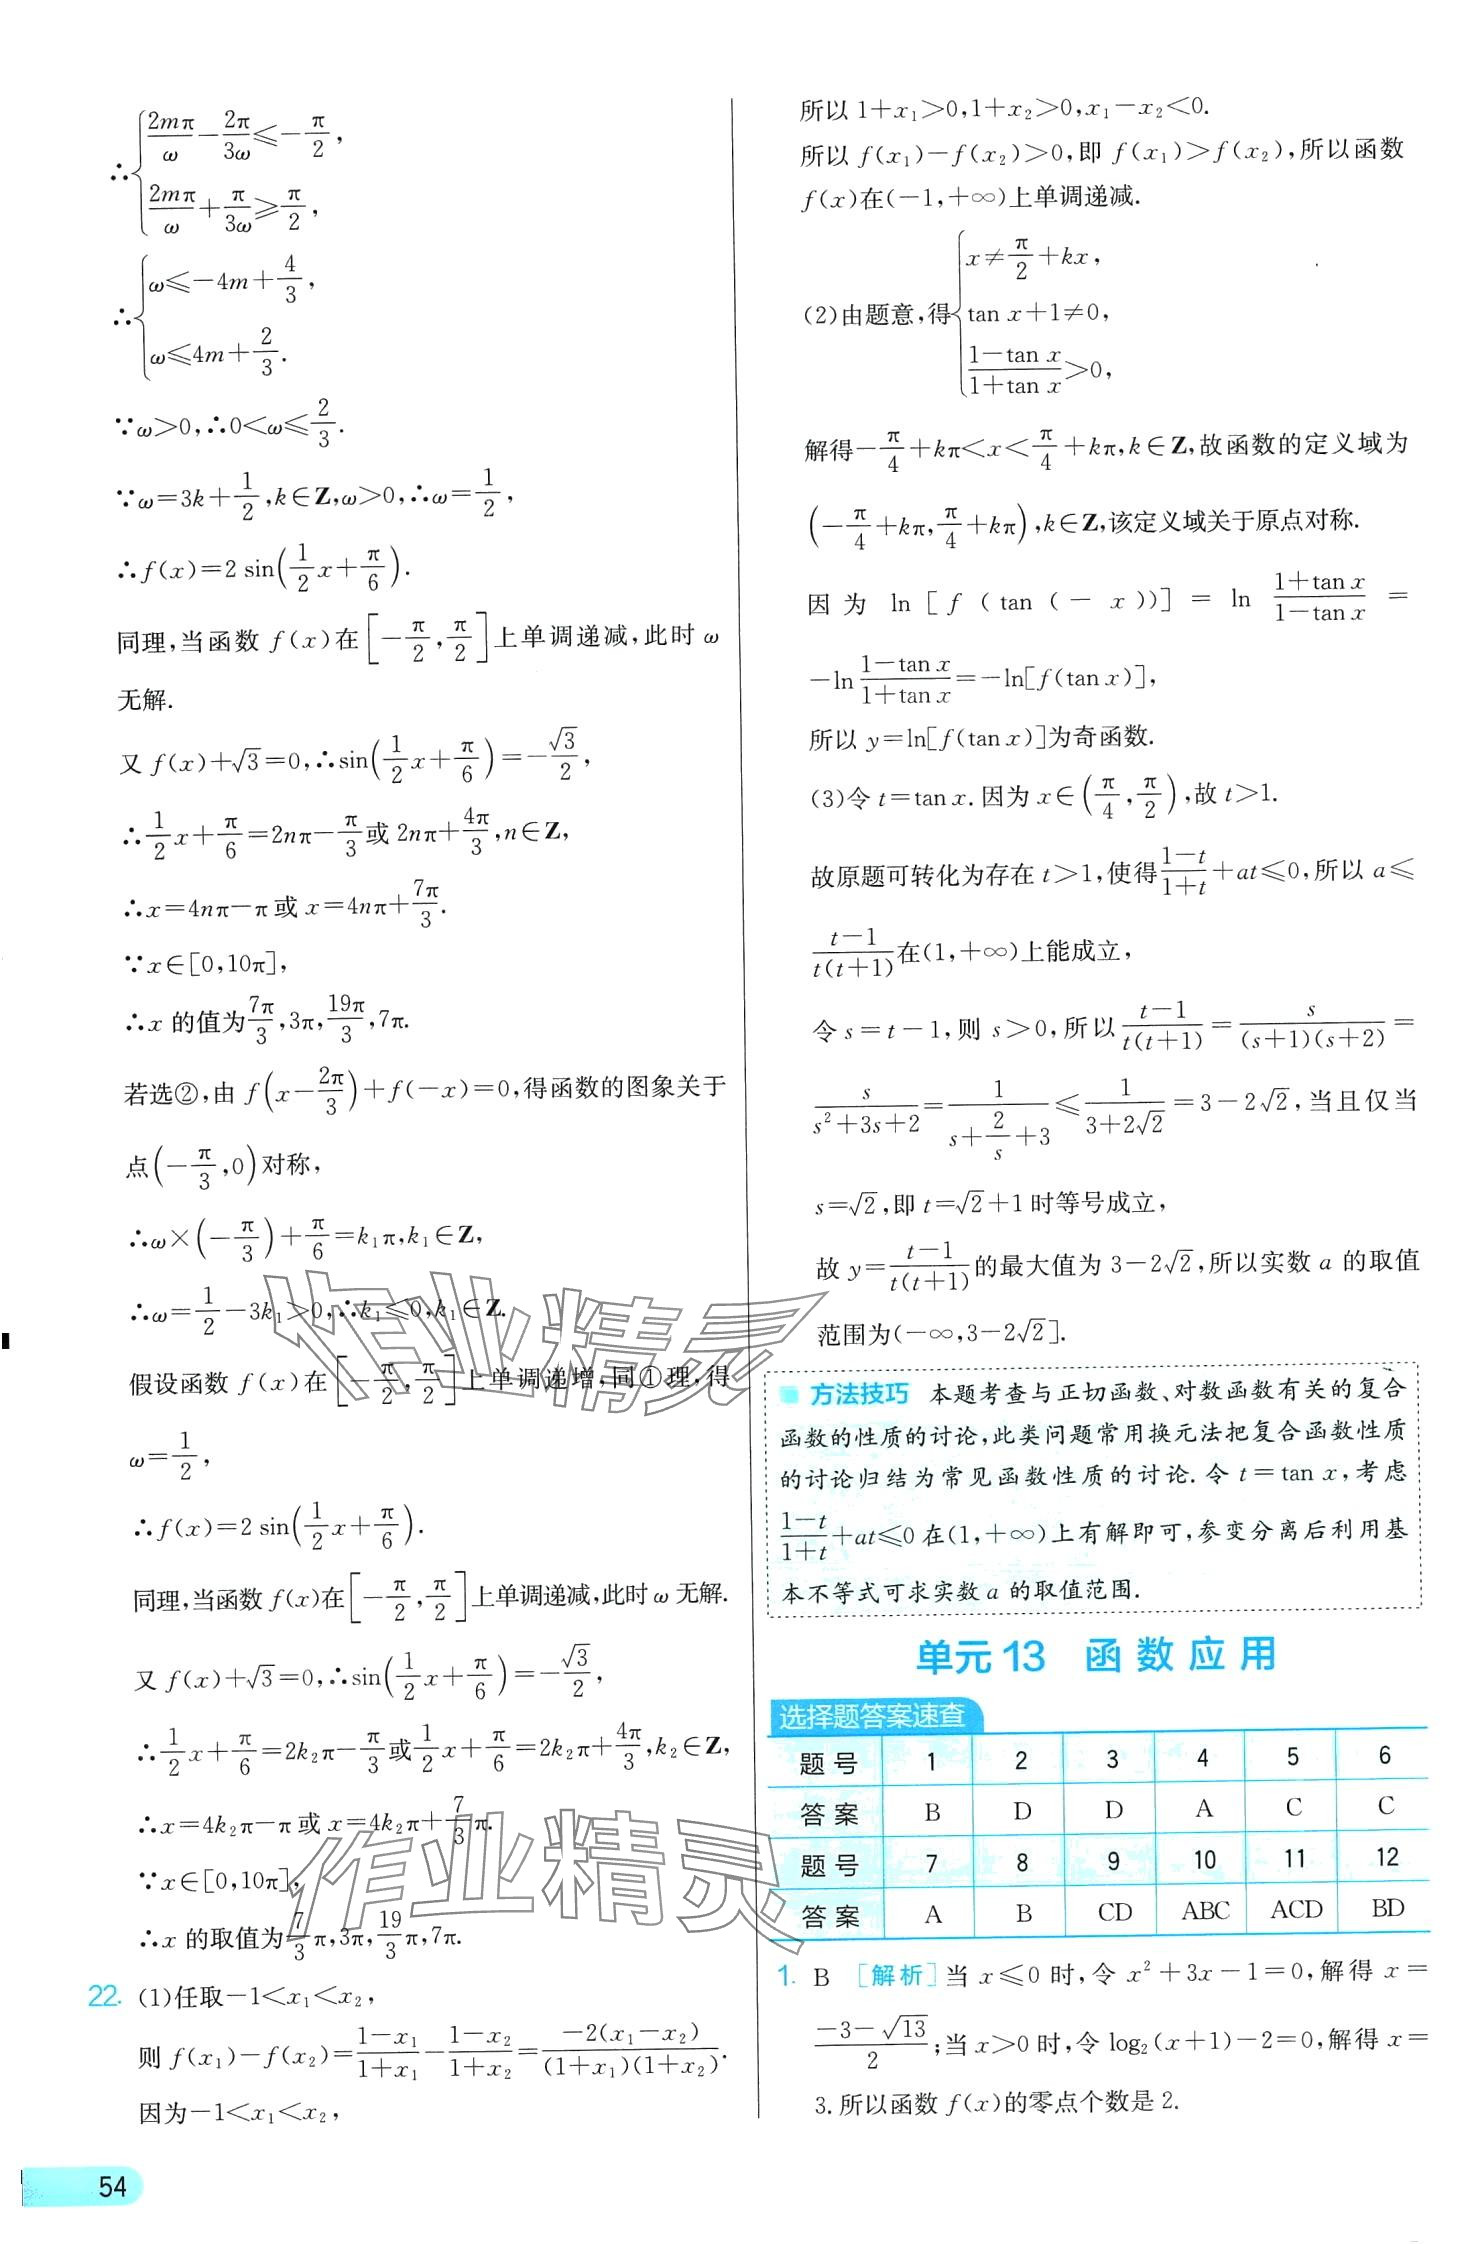 ∴{2mπ/ω－2π/3ω≤－π/2,
2mπ/ω＋π/3ω≥π/2,
∴{ω≤－4m＋4/3,
ω≤4m＋2/3.
∵ω＞0,∴0＜ω≤2/3.
∵ω＝3k＋1/2,k∈Z,ω＞0,∴ω＝1/2,
∴f(x)＝2 sin(1/2 x＋π/6).
同理,当函数 f(x)在[－π/2,π/2]上单调递减,此时 ω
无解.
又 f(x)＋√3＝0,∴sin(1/2 x＋π/6)＝－√3/2,
∴1/2 x＋π/6＝2nπ－π/3或 2nπ＋4π/3,n∈Z,
∴x＝4nπ－π 或 x＝4nπ＋7π/3.
∵x∈[0,10π],
∴x 的值为7π/3,3π,19π/3,7π.
若选②,由 f(x－2π/3)＋f(－x)＝0,得函数的图象关于
点(－π/3,0)对称,
∴ω×(－π/3)＋π/6＝k₁π,k₁∈Z,
∴ω＝1/2－3k₁＞0,∴k₁≤0,k₁∈Z.
假设函数 f(x)在[－π/2,π/2]上单调递增,同①理,得
ω＝1/2,
∴f(x)＝2 sin(1/2 x＋π/6).
同理,当函数 f(x)在[－π/2,π/2]上单调递减,此时 ω 无解.
又 f(x)＋√3＝0,∴sin(1/2 x＋π/6)＝－√3/2,
∴1/2 x＋π/6＝2k₂π－π/3或1/2 x＋π/6＝2k₂π＋4π/3,k₂∈Z,
∴x＝4k₂π－π 或 x＝4k₂π＋7/3 π.
∵x∈[0,10π],
∴x 的取值为7/3 π,3π,19/3 π,7π.
22. (1)任取－1＜x₁＜x₂,
则 f(x₁)－f(x₂)＝(1－x₁)/(1＋x₁)－(1－x₂)/(1＋x₂)＝－2(x₁－x₂)/((1＋x₁)(1＋x₂)).
因为－1＜x₁＜x₂,
54
所以 1＋x₁＞0,1＋x₂＞0,x₁－x₂＜0.
所以 f(x₁)－f(x₂)＞0,即 f(x₁)＞f(x₂),所以函数
f(x)在(－1,＋∞)上单调递减.
(2)由题意,得{x≠π/2＋kx,
tan x＋1≠0,
(1－tan x)/(1＋tan x)＞0,
解得－π/4＋kπ＜x＜π/4＋kπ,k∈Z,故函数的定义域为
(－π/4＋kπ,π/4＋kπ),k∈Z,该定义域关于原点对称.
因为 ln[f(tan(－x))]＝ln (1＋tan x)/(1－tan x)＝
－ln (1－tan x)/(1＋tan x)＝－ln[f(tan x)],
所以 y＝ln[f(tan x)]为奇函数.
(3)令 t＝tan x.因为 x∈(π/4,π/2),故 t＞1.
故原题可转化为存在 t＞1,使得(1－t)/(1＋t)＋at≤0,所以 a≤
(t－1)/(t(t＋1))在(1,＋∞)上能成立,
令 s＝t－1,则 s＞0,所以(t－1)/(t(t＋1))＝s/((s＋1)(s＋2))＝
s/(s²＋3s＋2)＝1/(s＋2/s＋3)≤1/(3＋2√2)＝3－2√2,当且仅当
s＝√2,即 t＝√2＋1 时等号成立,
故 y＝(t－1)/(t(t＋1))的最大值为 3－2√2,所以实数 a 的取值
范围为(－∞,3－2√2].
方法技巧 本题考查与正切函数、对数函数有关的复合
函数的性质的讨论,此类问题常用换元法把复合函数性质
的讨论归结为常见函数性质的讨论.令 t＝tan x,考虑
(1－t)/(1＋t)＋at≤0 在(1,＋∞)上有解即可,参变分离后利用基
本不等式可求实数 a 的取值范围.
单元 13 函数应用
选择题答案速查
题号 1 2 3 4 5 6
答案 B D D A C C
题号 7 8 9 10 11 12
答案 A B CD ABC ACD BD
1. B [解析]当 x≤0 时,令 x²＋3x－1＝0,解得 x＝
(－3－√13)/2;当 x＞0 时,令 log₂(x＋1)－2＝0,解得 x＝
3.所以函数 f(x)的零点个数是 2.
作业精灵
作业精灵